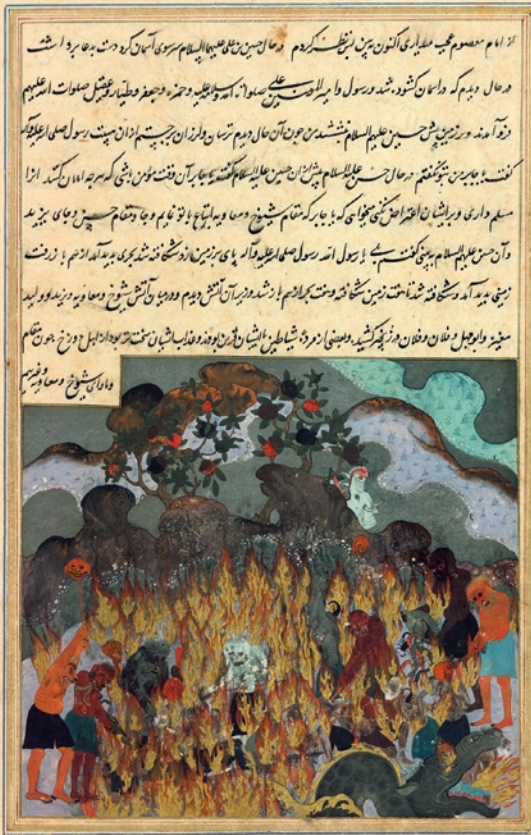 از امام معصوم عجب میداری اکنون ببین پس نظر کردم در حال حسین بن علی علیهما السلام سر سوی آسمان کرد دست بدعا برداشت
در حال دیدم که در آسمان کشوده شد و رسول و امیر المؤمنین علی صلوات الله و سلامه علیه و حمزه و جعفر و طیار و عقیل صلوات الله علیهم
فرو آمدند و بر زمین پیش حسین علیهم السلام بنشستند من چون آن حال دیدم ترسان و لرزان برجستم از آن هیبت رسول صلی الله علیه و آله
گفت یا جابر من نتو گفتم در حال حسن علیه السلام پیش از آن حسین علیه السلام گفت یا جابر آن وقت مؤمن باشی که هر چه امامان کنند آنرا
مسلم داری و بر ایشان اعتراض نکنی میخواهی که یا جابر که مقام شیوخ و معاویه اتباع با تو نمایم و جاه و مقام حسین و جای یزید
و آن حسن علیهم السلام ببینی گفتم بلی یا رسول الله رسول صلی الله علیه و آله پای بر زمین زد و شکافته شد بحری بدید آمد از هم باز رفت
زمینی بدید آمد و شکافته شد تا هفت زمین شکافته و هفت بحر از هم باز شد و زیر آن آتش دیدم و در میان آتش شیوخ و معاویه و یزید و ولید
مغیره و ابو جهل و فلان و فلان در زنجیر کشیده و بعضی از مرده شیاطین با ایشان قرین بودند و عذاب ایشان سخت تر بود از اهل دوزخ چون مقام
و ماوای شیوخ و معاویه و غیرهم